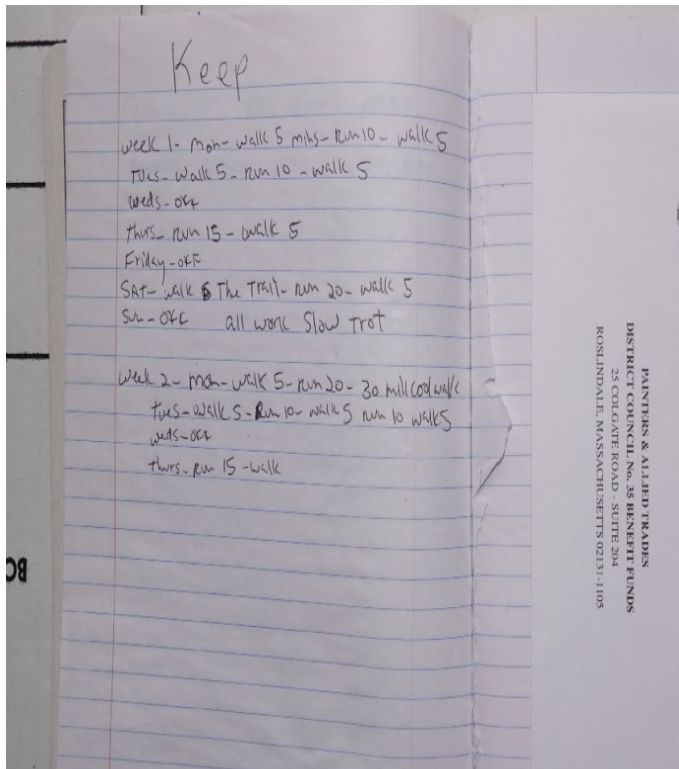 Keep
week 1- mon- walk 5 mins- Run 10- walk 5
Tues- walk 5- run 10 - walk 5
weds- off
thurs- run 15- walk 5
Friday- off
SAT- walk 5 The Trail- run 20- walk 5
Sun- off all work Slow Trot
week 2- mon- walk 5- run 20- 30 mill cool walk
tues- walk 5- Run 10- walk 5 run 10 walk 5
weds- off
thurs- run 15 -walk
PAINTERS & ALLIED TRADES
DISTRICT COUNCIL No. 35 BENEFIT FUNDS
25 COLGATE ROAD - SUITE 204
ROSLINDALE, MASSACHUSETTS 02131-1105